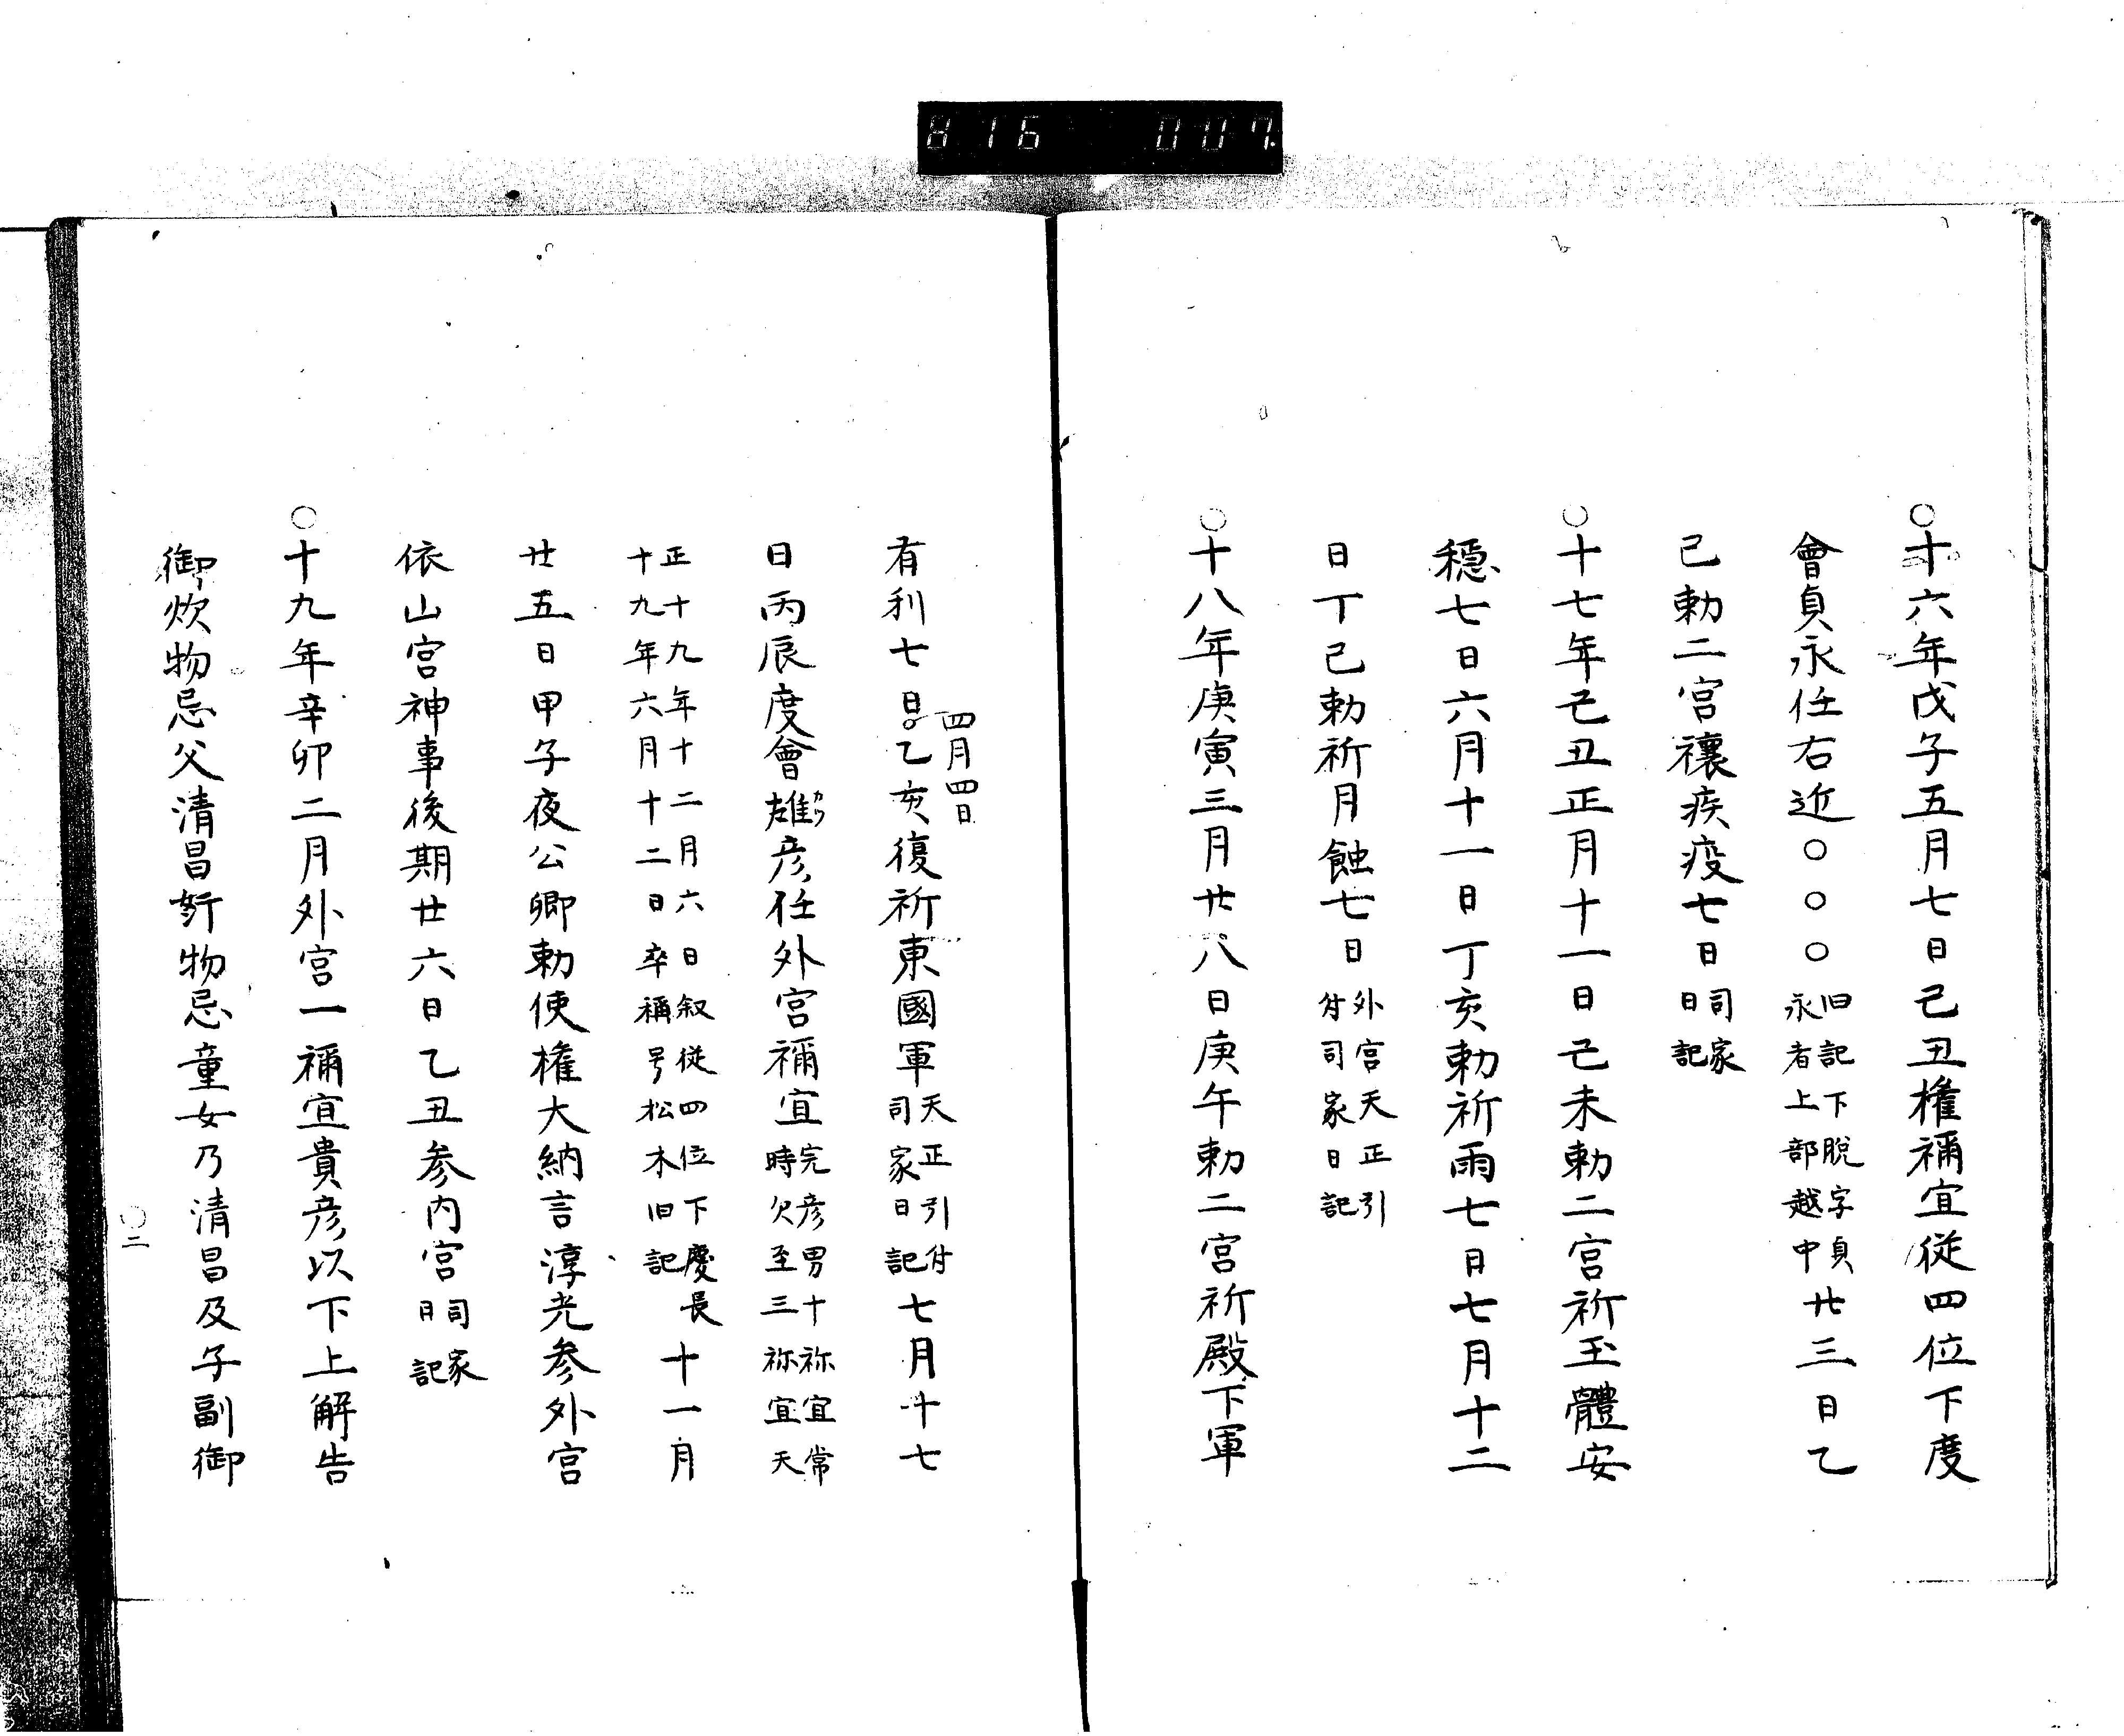 816 007.
○十六年戊子五月七日己丑権禰宜従四位下度
會貞永任右近○○○旧記下脱字貞
永者上部越中廿三日乙
巳勅二宮禳疾疫七日司家
日記
○十七年己丑正月十一日己未勅二宮祈玉體安
穏七日六月十一日丁亥勅祈雨七日七月十二
日丁巳勅祈月蝕七日外宮天正引
付司家日記
○十八年庚寅三月廿八日庚午勅二宮祈殿下軍
有利七日乙亥復祈東國軍天正引付
司家日記七月十七
四月四日
日丙辰度會雄彦任外宮禰宜完彦男十祢宜常
時欠至三祢宜天
カツ
正十九年十二月六日叙従四位下慶長
十九年六月十二日卒稱号松木旧記十一月
廿五日甲子夜公卿勅使権大納言淳光参外宮
依山宮神事後期廿六日乙丑参内宮司家
日記
○十九年辛卯二月外宮一禰宜貴彦以下上解告
御炊物忌父清昌奸物忌童女乃清昌及子副御
○二